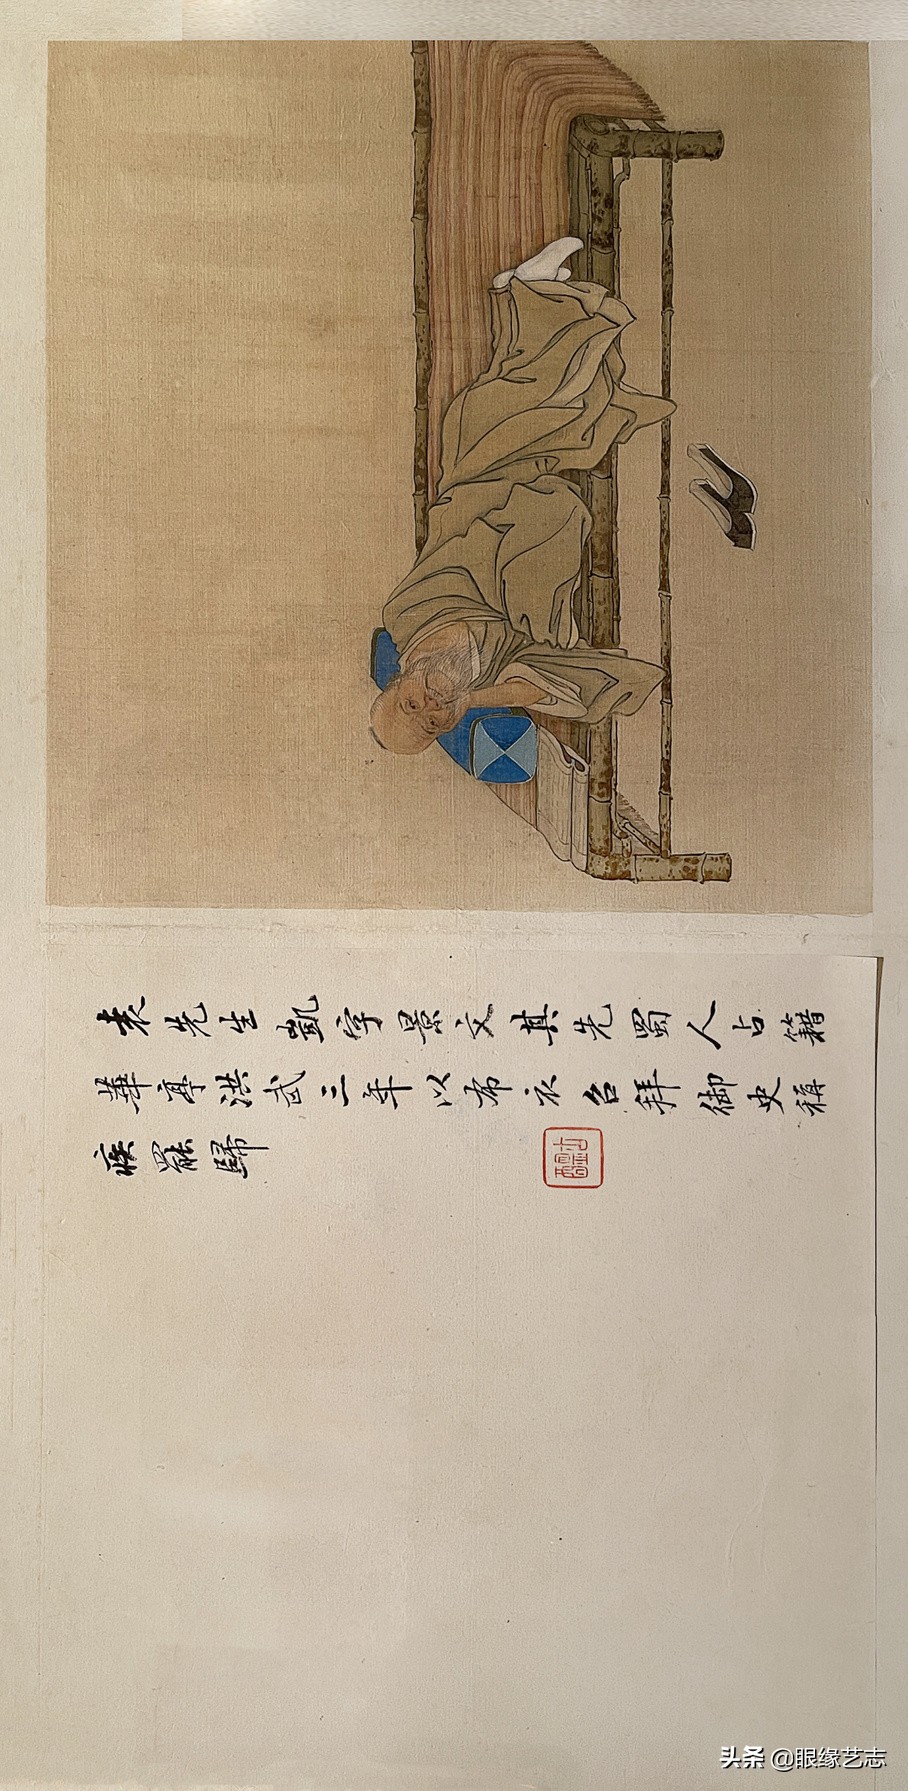 袁先生凱字景文其先蜀人占籍
華亭洪武三年以布衣召拜御史稱
疾罷歸
头条 @眼缘艺志